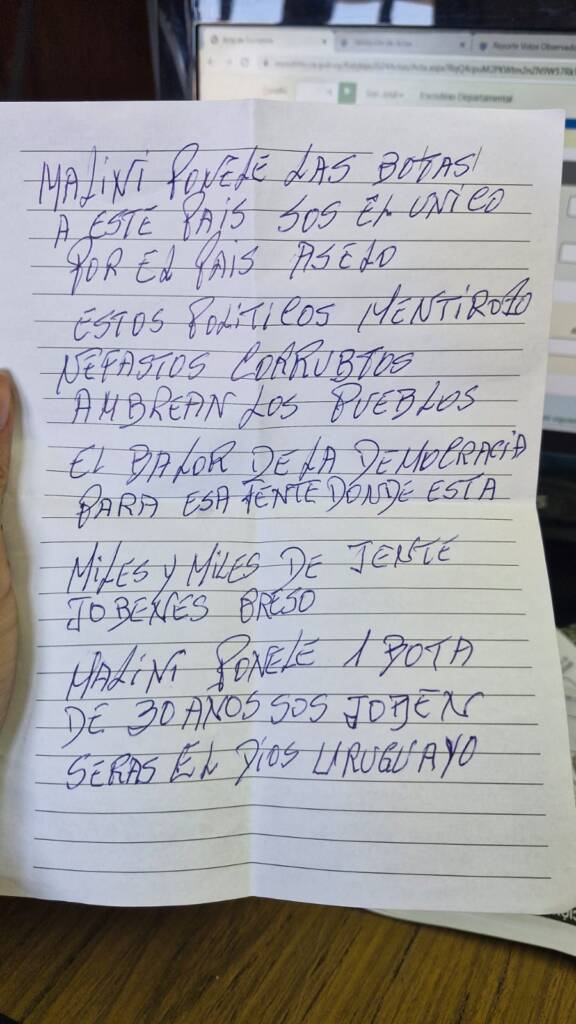 Reporte Votos Observado
Escrutinio Departamental
MALINI PONELE LAS BOTAS
A ESTE PAIS SOS EL UNICO
POR EL PAIS ASELO
ESTOS POLITICOS MENTIROSO
NEFASTOS CORRUBTOS
AMBREAN LOS PUEBLOS
EL BALOR DE LA DEMOCRACIA
PARA ESA JENTE DONDE ESTA
MILES Y MILES DE JENTE
JOBENES PRESO
MALINI PONELE 1 BOTA
DE 30 ANOS SOS JOBEN
SERAS EL DIOS URUGUAYO